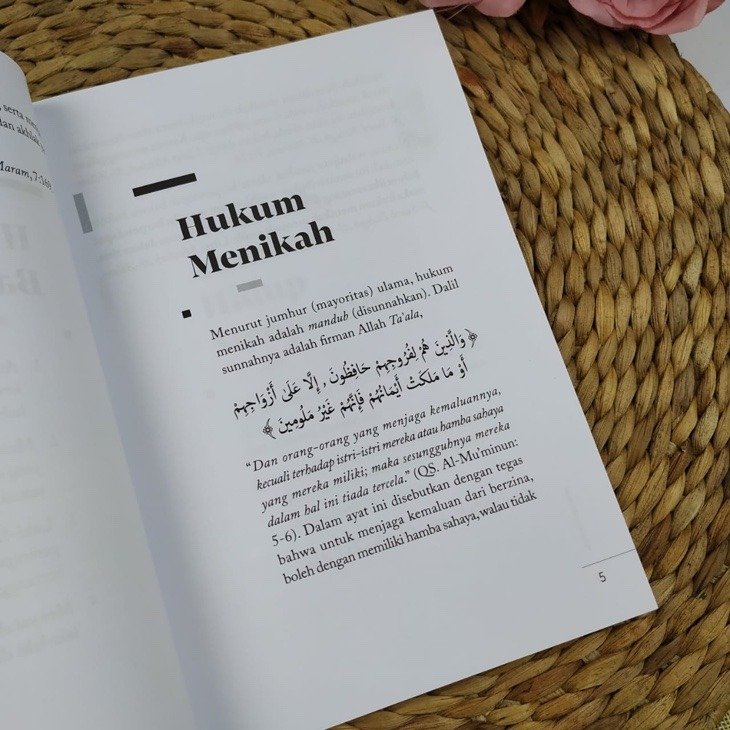 serta
dan akhlak
Maram, 7:169
Hukum
Menikah
Menurut jumhur (mayoritas) ulama, hukum
menikah adalah mandub (disunnahkan). Dalil
sunnahnya adalah firman Allah Ta'ala,
﴿ وَالَّذِينَ هُمْ لِفُرُوجِهِمْ حَافِظُونَ ، إِلَّا عَلَى أَزْوَاجِهِمْ
أَوْ مَا مَلَكَتْ أَيْمَانُهُمْ فَإِنَّهُمْ غَيْرُ مَلُومِينَ ﴾
“Dan orang-orang yang menjaga kemaluannya,
kecuali terhadap istri-istri mereka atau hamba sahaya
yang mereka miliki; maka sesungguhnya mereka
dalam hal ini tiada tercela.” (QS. Al-Mu’minun:
5-6). Dalam ayat ini disebutkan dengan tegas
bahwa untuk menjaga kemaluan dari berzina,
boleh dengan memiliki hamba sahaya, walau tidak
5